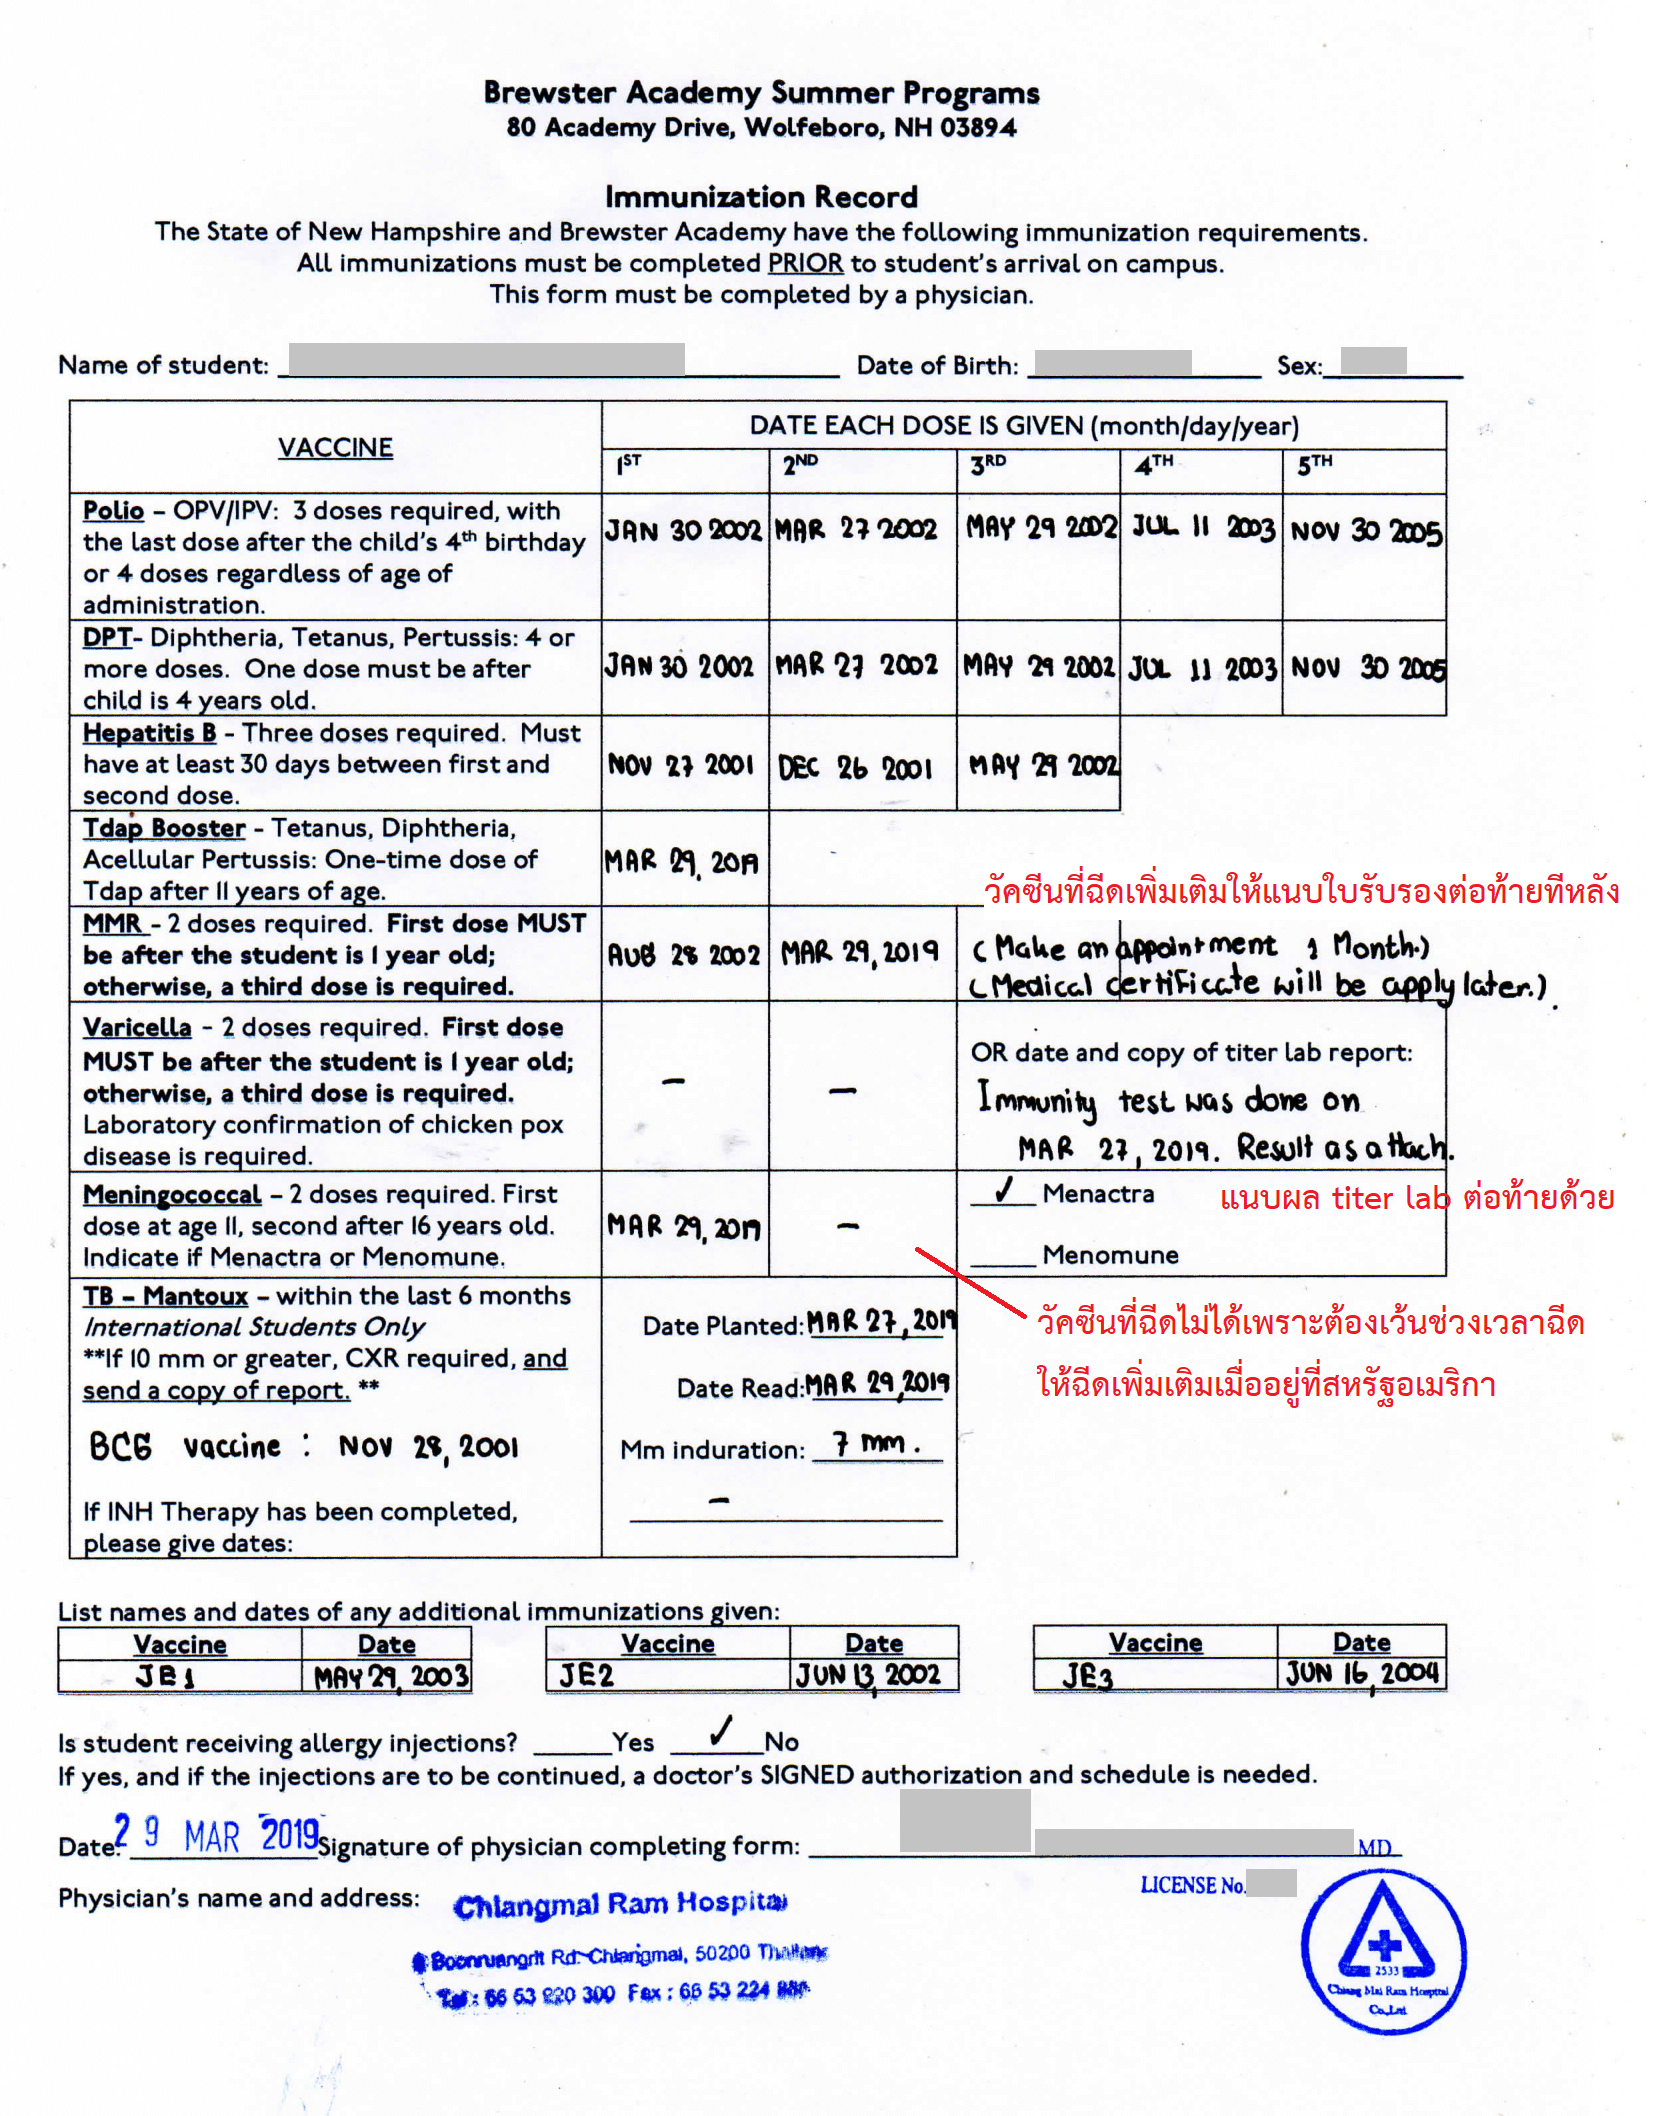 Brewster Academy Summer Programs
80 Academy Drive, Wolfeboro, NH 03894
Immunization Record
The State of New Hampshire and Brewster Academy have the following immunization requirements.
All immunizations must be completed PRIOR to student's arrival on campus.
This form must be completed by a physician.
Name of student: Date of Birth: Sex:
VACCINE
DATE EACH DOSE IS GIVEN (month/day/year)
1ST 2ND 3RD 4TH 5TH
Polio – OPV/IPV: 3 doses required, with
the last dose after the child's 4th birthday
or 4 doses regardless of age of
administration.
JAN 30 2002 MAR 27 2002 MAY 29 2002 JUL 11 2003 NOV 30 2005
DPT- Diphtheria, Tetanus, Pertussis: 4 or
more doses. One dose must be after
child is 4 years old.
JAN 30 2002 MAR 27 2002 MAY 29 2002 JUL 11 2003 NOV 30 2005
Hepatitis B - Three doses required. Must
have at least 30 days between first and
second dose.
NOV 27 2001 DEC 26 2001 MAY 29 2002
Tdap Booster - Tetanus, Diphtheria,
Acellular Pertussis: One-time dose of
Tdap after 11 years of age.
MAR 29, 2019
วัคซีนที่ฉีดเพิ่มเติมให้แนบใบรับรองต่อท้ายทีหลัง
MMR - 2 doses required. First dose MUST
be after the student is 1 year old;
otherwise, a third dose is required.
AUG 28 2002 MAR 29, 2019
(Make an appointment 1 Month.)
(Medical certificate will be apply later.).
Varicella - 2 doses required. First dose
MUST be after the student is 1 year old;
otherwise, a third dose is required.
Laboratory confirmation of chicken pox
disease is required.
– –
OR date and copy of titer lab report:
Immunity test was done on
MAR 27, 2019. Result as attach.
Meningococcal – 2 doses required. First
dose at age 11, second after 16 years old.
Indicate if Menactra or Menomune.
MAR 29, 2019 –
✓ Menactra
แนบผล titer lab ต่อท้ายด้วย
Menomune
TB – Mantoux – within the last 6 months
International Students Only
**If 10 mm or greater, CXR required, and
send a copy of report. **
BCG vaccine : NOV 28, 2001
If INH Therapy has been completed,
please give dates:
Date Planted: MAR 27, 2019
Date Read: MAR 29, 2019
Mm induration: 7 mm.
–
วัคซีนที่ฉีดไม่ได้เพราะต้องเว้นช่วงเวลาฉีด
ให้ฉีดเพิ่มเติมเมื่ออยู่ที่สหรัฐอเมริกา
List names and dates of any additional immunizations given:
Vaccine Date Vaccine Date Vaccine Date
JE1 MAY 29, 2003 JE2 JUN 13, 2002 JE3 JUN 16, 2004
Is student receiving allergy injections? Yes ✓ No
If yes, and if the injections are to be continued, a doctor's SIGNED authorization and schedule is needed.
Date: 29 MAR 2019 Signature of physician completing form: MD
LICENSE No.
Physician's name and address: Chiangmai Ram Hospital
Boonruangrit Rd. Chiangmai, 50200 Thailand
Tel : 66 53 920 300 Fax : 66 53 224 880
2533
Chiang Mai Ram Hospital
Co.,Ltd.